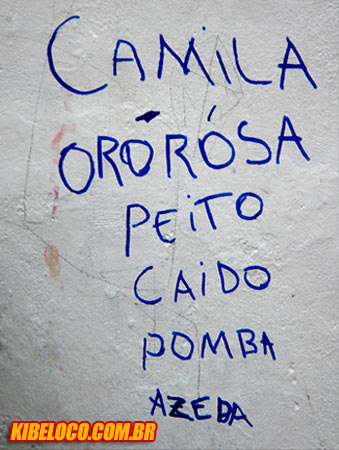 CAMILA
ORORÓSA
PEiTO
CAiDO
POMBA
AZEDA
KIBELOCO.COM.BR